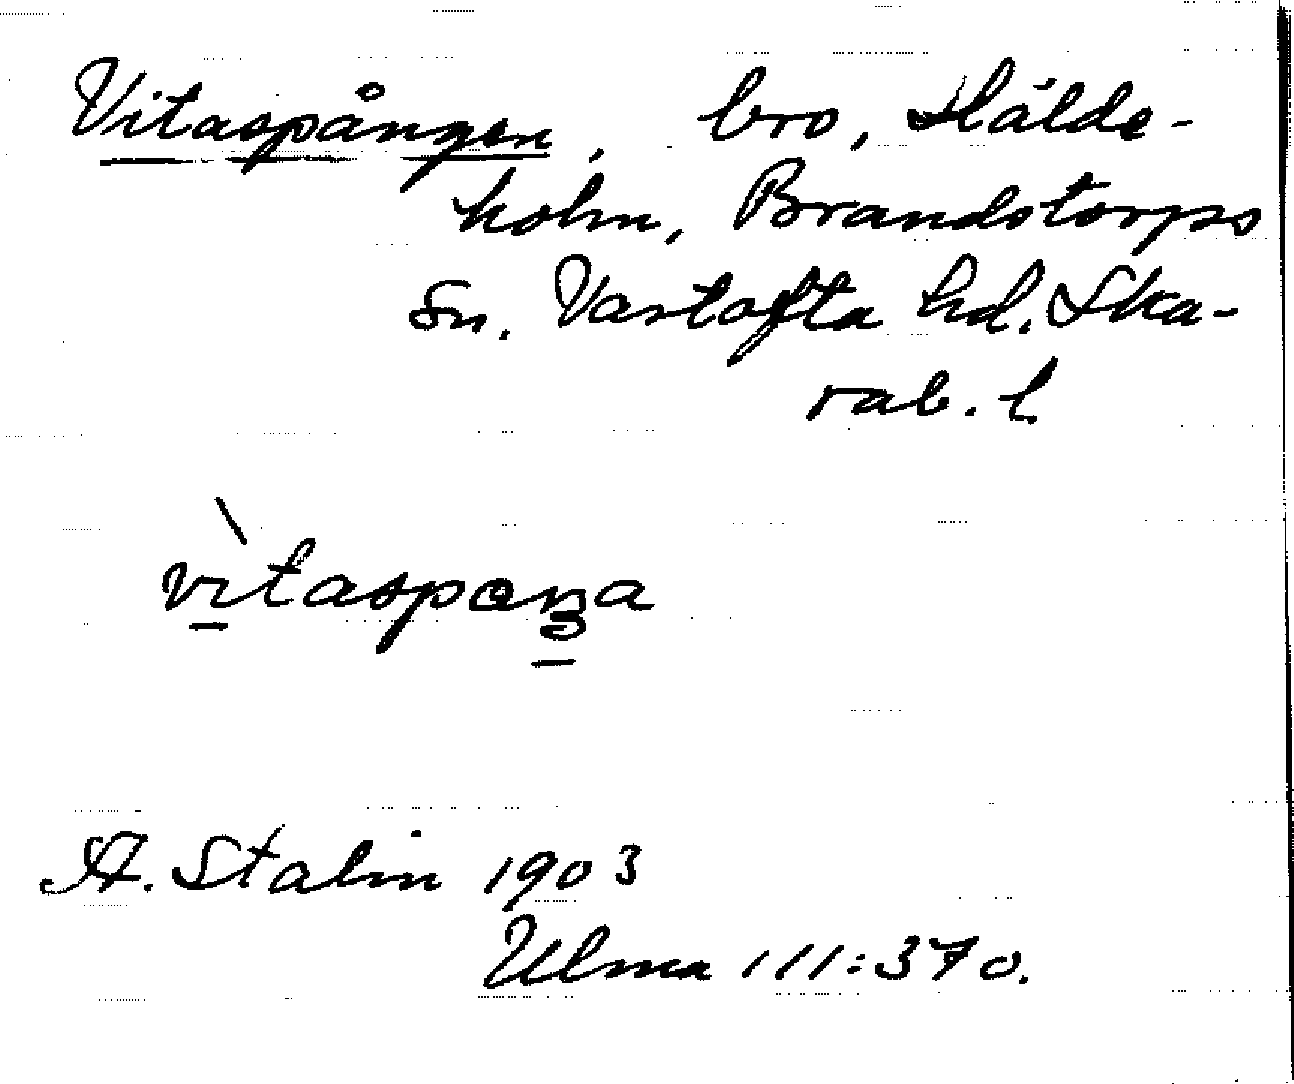 Vitaspången, bro, Hälde-
holm, Brandstorps
sn. Vartofta hd. Ska-
rab. l.
vìtaspɑŋa
A. Stalin 1903
Ulma 111:370.